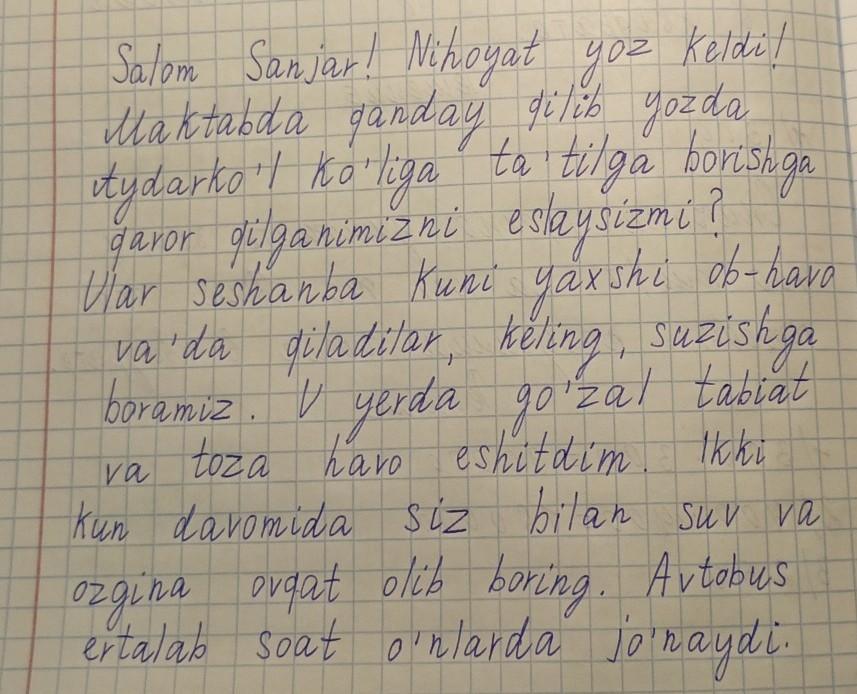 Salom Sanjar! Nihoyat yoz keldi!
Maktabda qanday qilib yozda
Aydarko'l ko'liga ta'tilga borishga
qaror qilganimizni eslaysizmi?
Ular seshanba kuni yaxshi ob-havo
va'da qiladilar, keling, suzishga
boramiz. U yerda go'zal tabiat
va toza havo eshitdim. Ikki
kun davomida siz bilan suv va
ozgina ovqat olib boring. Avtobus
ertalab soat o'nlarda jo'naydi.